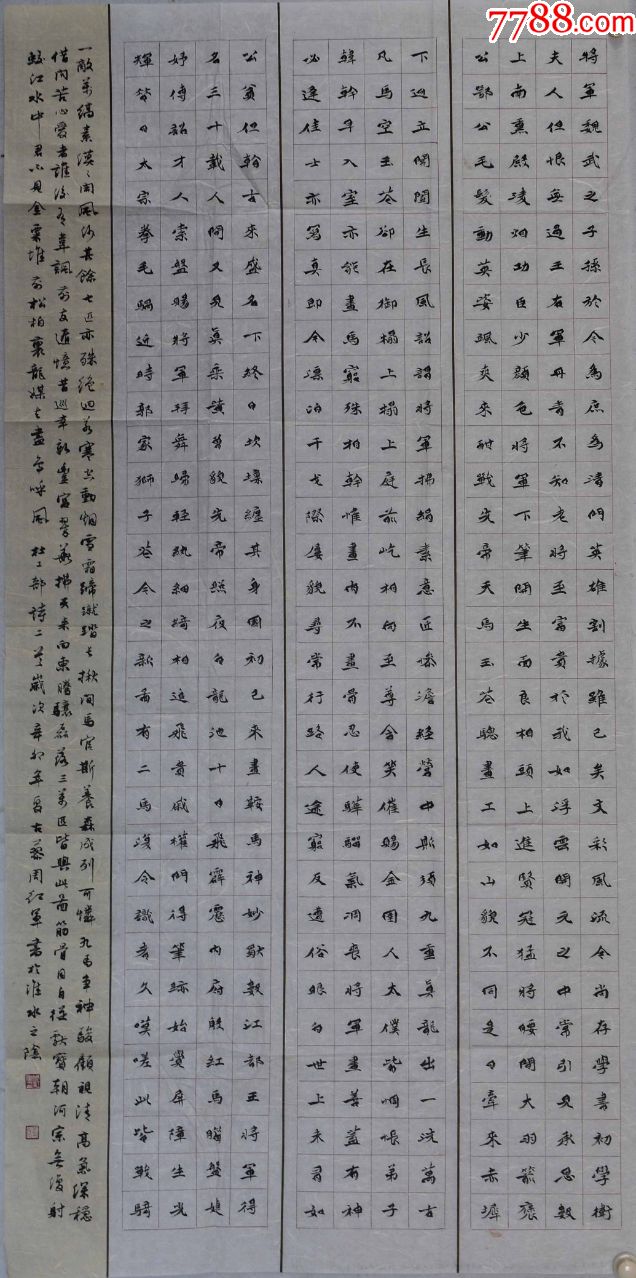 將軍魏武之子孫於今為庶為清門英雄割據雖已矣文彩風流今尚存學書初學衛
夫人但恨無過王右軍丹青不知老將至富貴於我如浮雲開元之中常引見承恩數
上南熏殿凌烟功臣少顏色將軍下筆開生面良相頭上進賢冠猛將腰間大羽箭褒
公鄂公毛髮動英姿颯爽來酣戰先帝天馬玉花驄畫工如山貌不同是日牽來赤墀
下迥立閶闔生長風詔謂將軍拂絹素意匠慘澹經營中斯須九重真龍出一洗萬古
凡馬空玉花卻在御榻上榻上庭前屹相向至尊含笑催賜金圉人太僕皆惆悵弟子
韓幹早入室亦能畫馬窮殊相幹惟畫肉不畫骨忍使驊騮氣凋喪將軍畫善蓋有神
必逢佳士亦寫真即今漂泊干戈際屢貌尋常行路人途窮反遭俗眼白世上未有如
公貧但看古來盛名下終日坎壈纏其身國初已來畫鞍馬神妙獨數江都王將軍得
名三十載人間又見真乘黃曾貌先帝照夜白龍池十日飛霹靂內府殷紅馬腦盤婕
妤傳詔才人索盤賜將軍拜舞歸輕紈細綺相追飛貴戚權門得筆跡始覺屏障生光
輝昔日太宗拳毛騧近時郭家獅子花今之新圖有二馬復令識者久嘆嗟此皆戰騎
一敵萬縞素漠漠開風沙其餘七匹亦殊絕迥若寒空動烟雪霜蹄蹴踏長楸間馬官廝養森成列可憐九馬爭神駿顧視清高氣深穩
借問苦心愛者誰後有韋諷前支遁憶昔巡幸新豐宮翠華拂天來向東騰驤磊落三萬匹皆與此圖筋骨同自從獻寶朝河宗無復射
蛟江水中君不見金粟堆前松柏裏龍媒去盡鳥呼風 杜工部詩二首歲次辛卯年夏古蔡周紅軍書於淮水之陰
7788.com